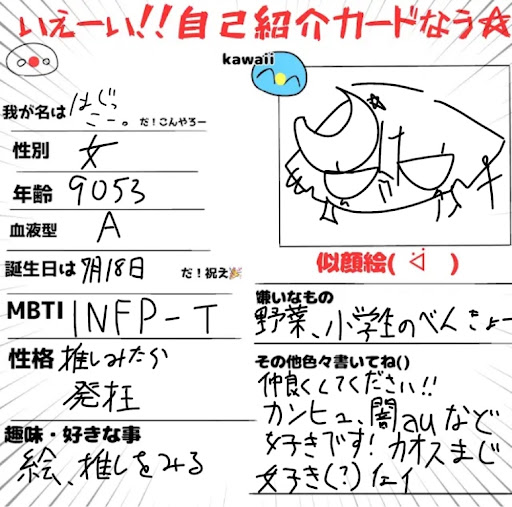 いぇーい!!自己紹介カードなう☆
kawaii
我が名は はじっこー。 だ!こんやろー
性別 女
年齢 9053
血液型 A
誕生日は 9月18日 だ!祝え🎉
MBTI INFP-T
性格 推しみたら
発狂
趣味・好きな事
絵、推しをみる
似顔絵( ᐛ )
嫌いなもの
野菜、小学生のべんきょー
その他色々書いてね()
仲良くしてください!!
カンヒュ、闇auなど
好きです! カオスまじ
好き(?)